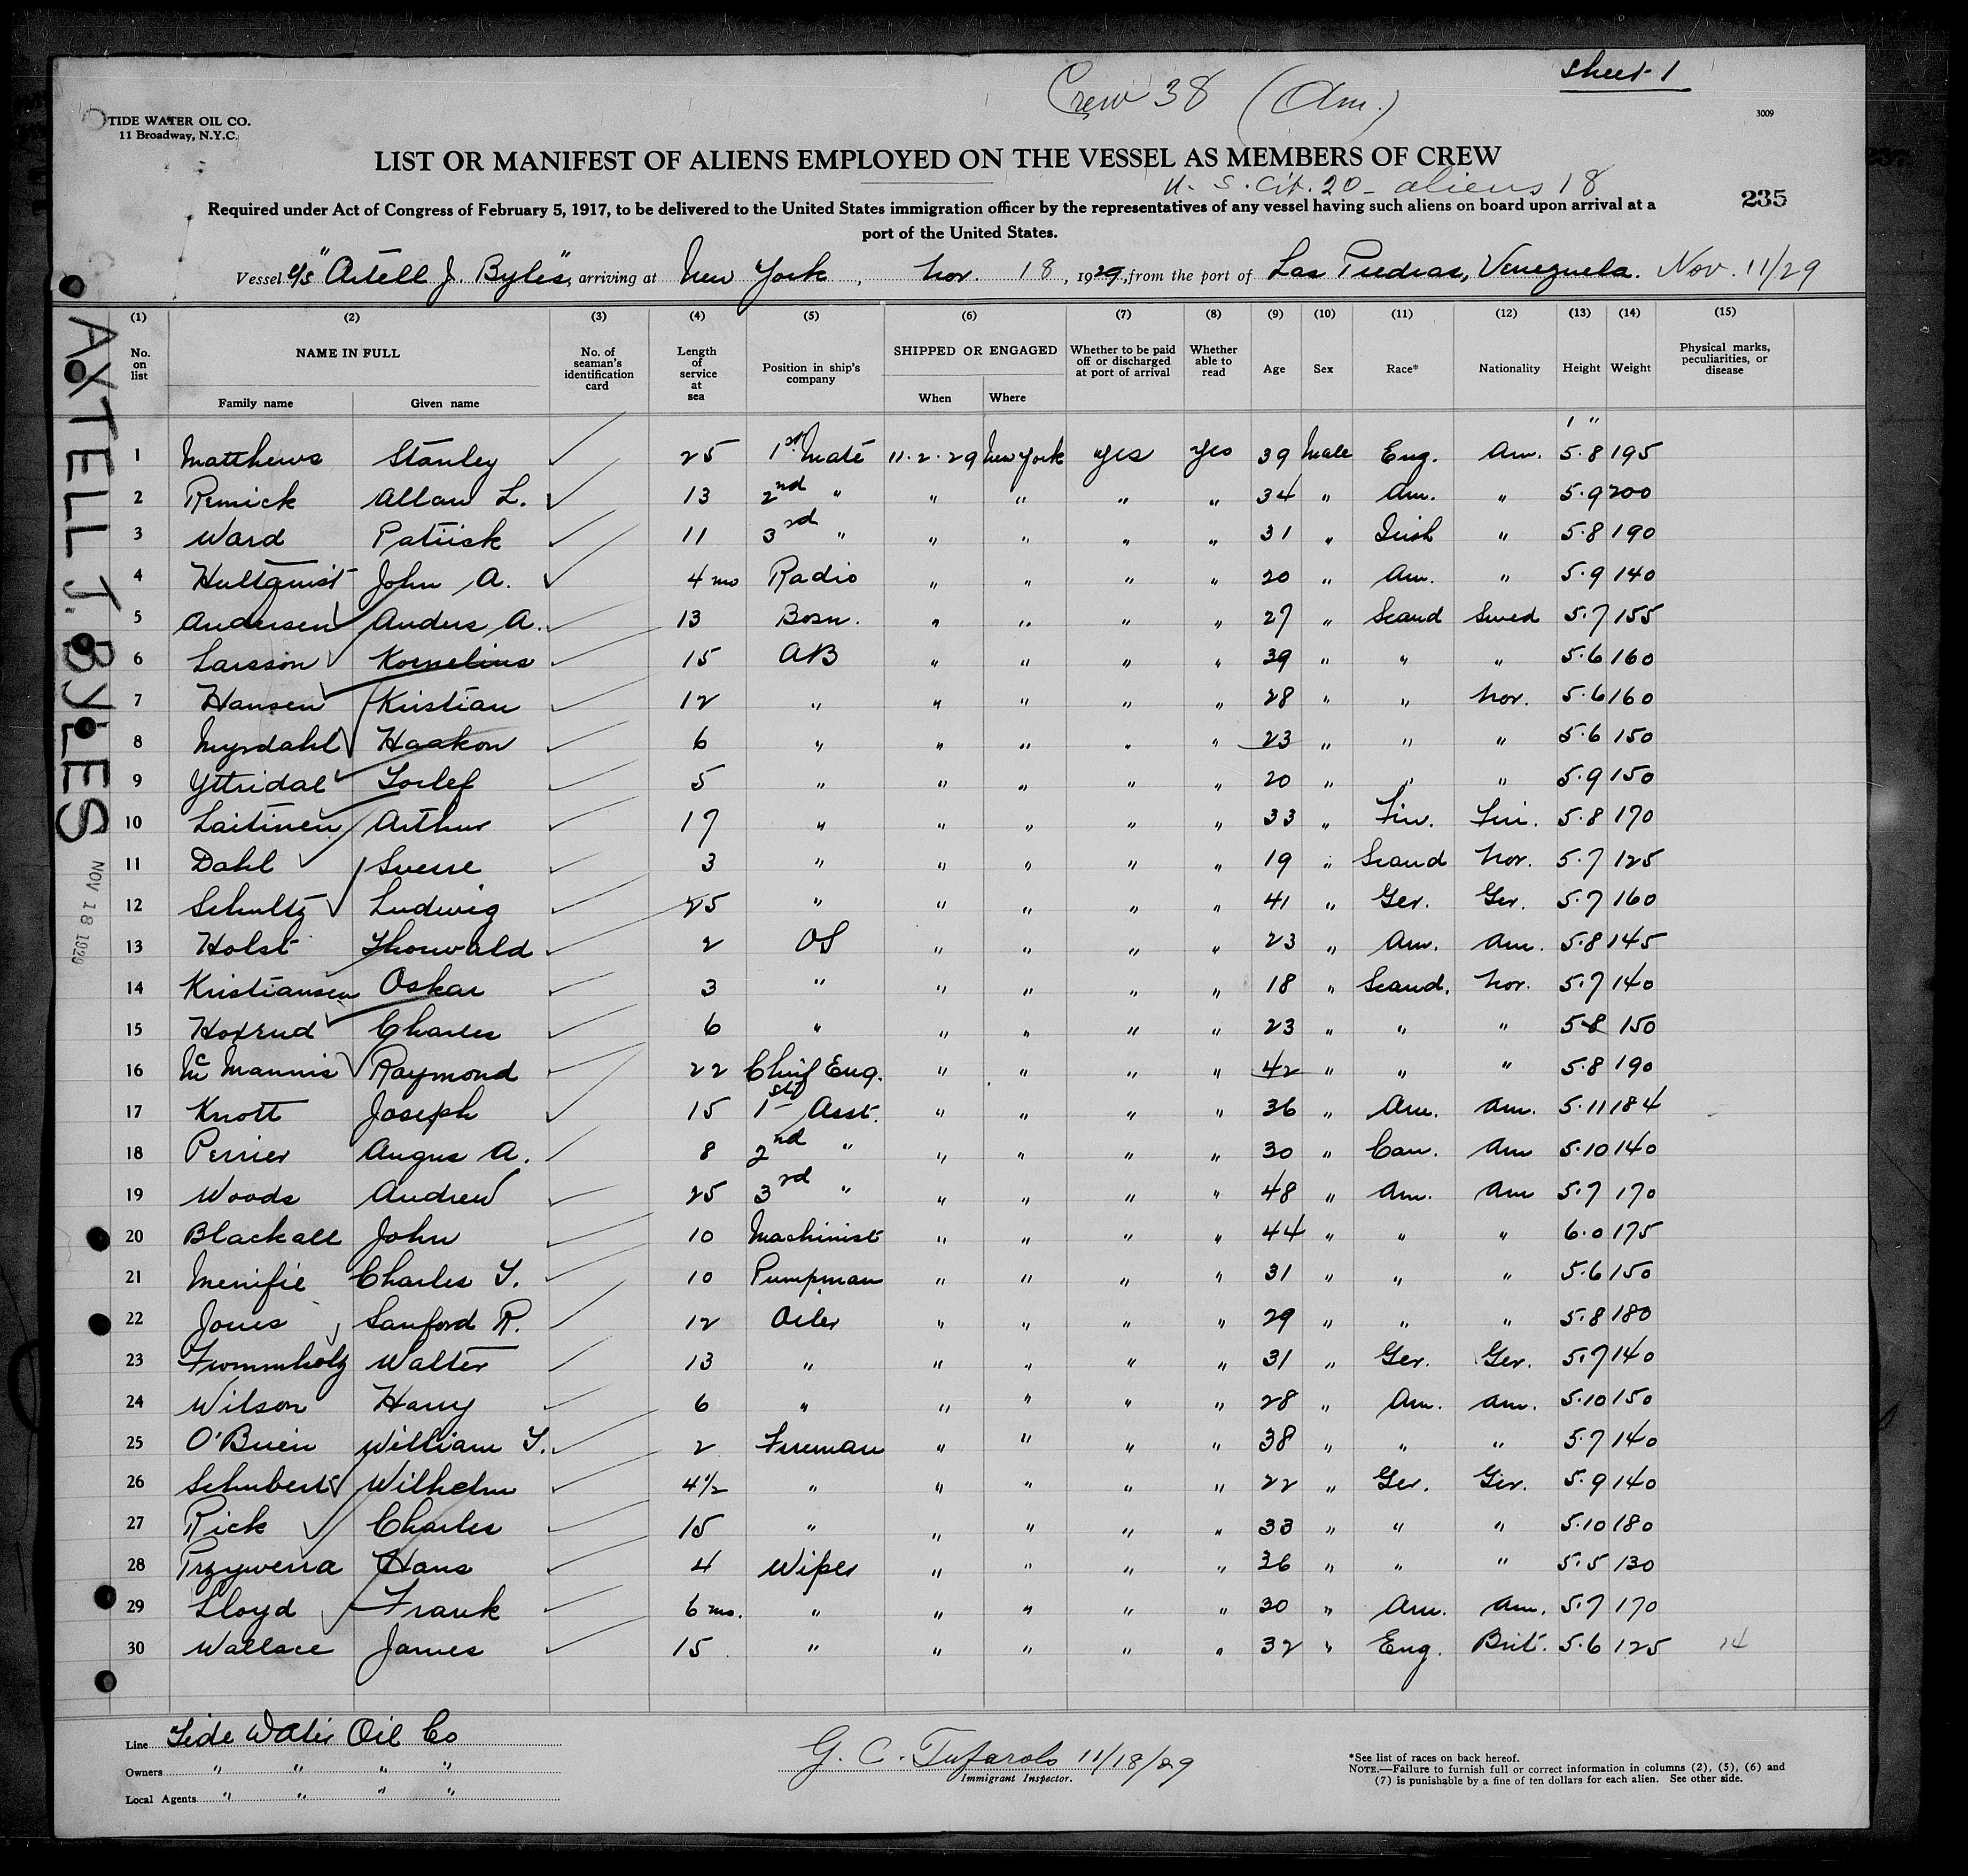 Sheet 1
Crew 38 (Am.)
TIDE WATER OIL CO.
11 Broadway, N.Y.C.
3009
LIST OR MANIFEST OF ALIENS EMPLOYED ON THE VESSEL AS MEMBERS OF CREW
U. S. Cit. 20 - aliens 18
235
Required under Act of Congress of February 5, 1917, to be delivered to the United States immigration officer by the representatives of any vessel having such aliens on board upon arrival at a
port of the United States.
Vessel S/S "Axtell J. Byles", arriving at New York, Nov. 18, 1929, from the port of Las Piedras, Venezuela. Nov. 11/29
AXTELL J. BYLES
NOV 18 1929
(1) (2) (3) (4) (5) (6) (7) (8) (9) (10) (11) (12) (13) (14) (15)
No. on list NAME IN FULL Family name Given name No. of seaman's identification card Length of service at sea Position in ship's company SHIPPED OR ENGAGED When Where Whether to be paid off or discharged at port of arrival Whether able to read Age Sex Race* Nationality Height Weight Physical marks, peculiarities, or disease
' "
1 Matthews Stanley 25 1st Mate 11-2-29 New York Yes Yes 39 Male Eng. Am. 5-8 195
2 Remick Allan L. 13 2nd " " " " " 34 " Am. " 5-9 200
3 Ward Patrick 11 3rd " " " " " 31 " Irish " 5-8 190
4 Hultquist John A. 4 mo Radio " " " " 20 " Am. " 5-9 140
5 Andersen Anders A. 13 Bosn. " " " " 27 " Scand Swed 5-7 155
6 Larsson Kornelius 15 AB " " " " 39 " " " 5-6 160
7 Hansen Kristian 12 " " " " " 28 " " Nor. 5-6 160
8 Myrdahl Haakon 6 " " " " " 23 " " " 5-6 150
9 Yttridal Torlef 5 " " " " " 20 " " " 5-9 150
10 Laitinen Arthur 17 " " " " " 33 " Fin. Fin. 5-8 170
11 Dahl Sverre 3 " " " " " 19 " Scand Nor. 5-7 125
12 Schultz Ludwig 25 " " " " " 41 " Ger. Ger. 5-7 160
13 Holst Thorwald 2 OS " " " " 23 " Am. Am. 5-8 145
14 Kristiansen Oskar 3 " " " " " 18 " Scand. Nor. 5-7 140
15 Hoxrud Charles 6 " " " " " 23 " " " 5-8 150
16 McMannis Raymond 22 Chief Eng. " " " " 42 " " " 5-8 190
17 Knott Joseph 15 1st Asst. " " " " 36 " Am. Am. 5-11 184
18 Perrier Angus A. 8 2nd " " " " " 30 " Can. Am 5-10 140
19 Woods Andrew 25 3rd " " " " " 48 " Am. Am 5-7 170
20 Blackall John 10 Machinist " " " " 44 " " " 6-0 175
21 Menifie Charles T. 10 Pumpman " " " " 31 " " " 5-6 150
22 Jones Sanford R. 12 Oiler " " " " 29 " " " 5-8 180
23 Frommholz Walter 13 " " " " " 31 " Ger. Ger. 5-7 140
24 Wilson Harry 6 " " " " " 28 " Am. Am. 5-10 150
25 O'Brien William T. 2 Fireman " " " " 38 " " " 5-7 140
26 Schubert Wilhelm 4½ " " " " " 22 " Ger. Ger. 5-9 140
27 Rick Charles 15 " " " " " 33 " " " 5-10 180
28 Przywerra Hans 4 Wiper " " " " 36 " " " 5-5 130
29 Lloyd Frank 6 mo. " " " " " 30 " Am. Am. 5-7 170
30 Wallace James 15 " " " " " 32 " Eng. Brit. 5-6 125 14
Line Tide Water Oil Co
Owners " " " "
Local Agents " " " "
G. C. Tufarolo 11/18/29
Immigrant Inspector.
*See list of races on back hereof.
NOTE.—Failure to furnish full or correct information in columns (2), (5), (6) and
(7) is punishable by a fine of ten dollars for each alien. See other side.